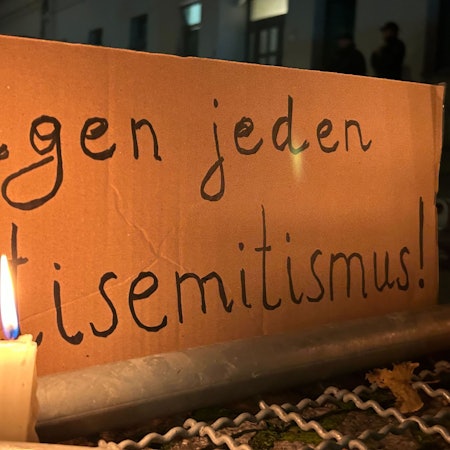 gegen jeden
tisemitismus!